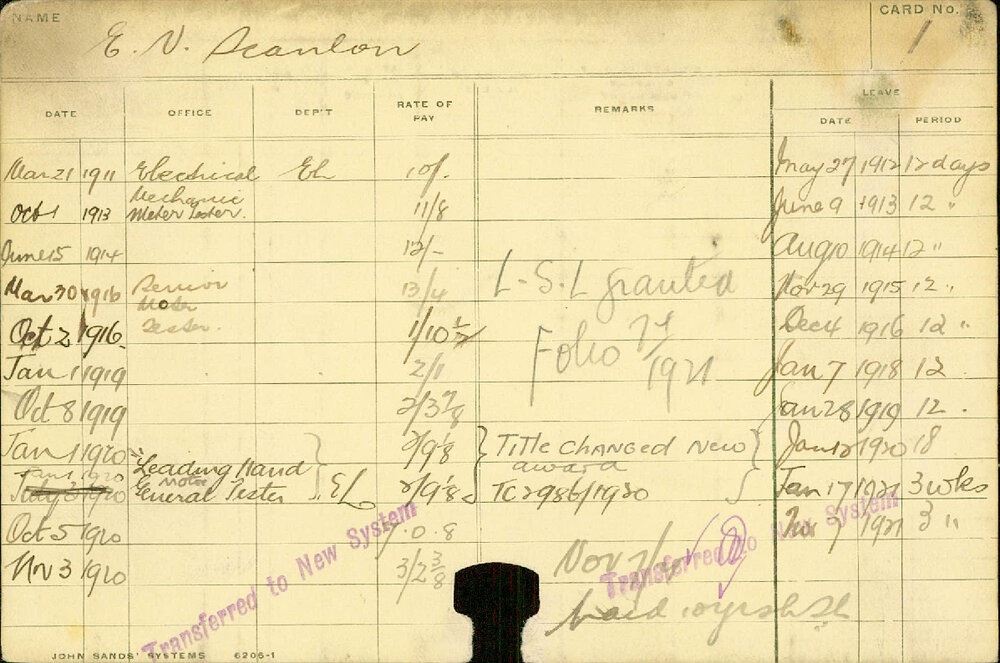 NAME
E. N. Scanlon
CARD No. 1
DATE OFFICE DEP'T RATE OF PAY REMARKS LEAVE
DATE PERIOD
Mar 21 1911 Electrical El 10/. May 27 1912 12 days
Mechanic
Oct 1 1913 Meter Tester. 11/8 June 9 1913 12 "
June 15 1914 12/- Aug 10 1914 12 "
Mar 30 1916 Senior 13/4 L-S.L granted Nov 29 1915 12 "
Meter
Oct 2 1916 Tester. 1/10 1/2 Dec 4 1916 12 "
Jan 1 1919 2/1 Folio 1921 Jan 7 1918 12
Oct 8 1919 2/3 7/8 Jan 28 1919 12 .
Jan 1 1920 2/9 1/8 Title Changed New Jan 12 1920 18
Jan 1 1920 Leading Hand award
July 3 1920 General Meter Tester El 2/9 1/8 TC 2986/1920 Jan 17 1921 3 wks
Oct 5 1920 .0.8 1921 3 "
Nov 3 1920 3/2 3/8 Nov
Transferred to New System
Transferred to New System
JOHN SANDS' SYSTEMS 6206-1